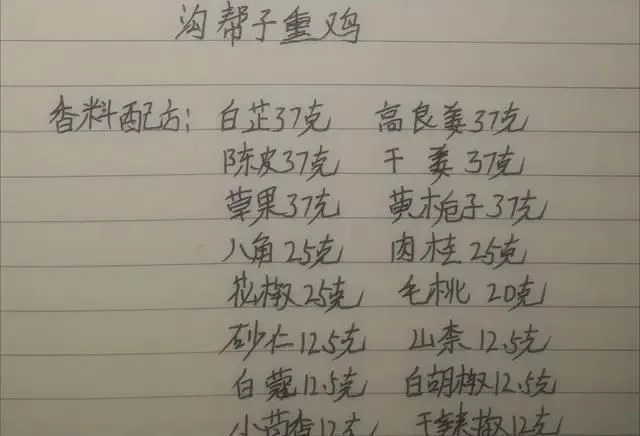 沟帮子熏鸡
香料配方：白芷37克 高良姜37克
陈皮37克 干姜 37克
草果37克 黄栀子37克
八角25克 肉桂25克
花椒25克 毛桃 20克
砂仁12.5克 山柰12.5克
白蔻12.5克 白胡椒12.5克
小茴香12克 干辣椒12克